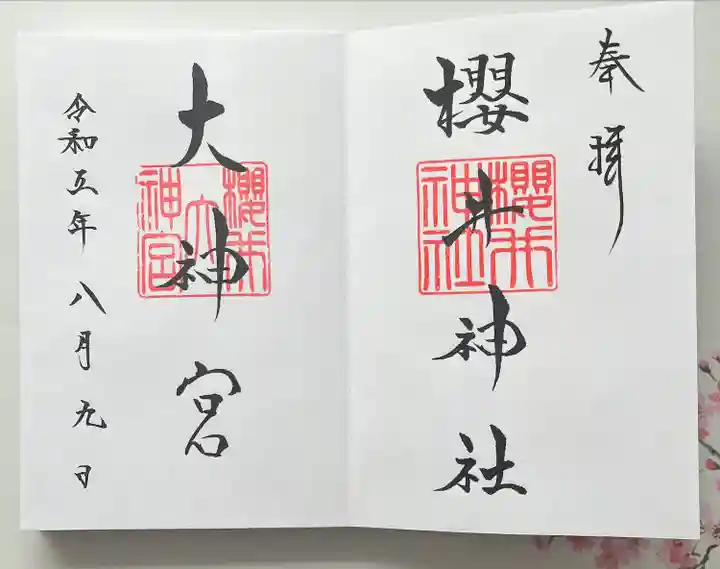 奉拜
櫻井神社
櫻井神社
大神宮
櫻井大神宮
令和五年八月九日